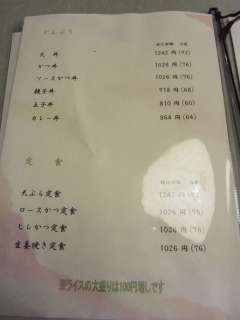 どんぶり
税込価格 内税
天丼 1242円(92)
かつ丼 1026円(76)
ソースかつ丼 1026円(76)
親子丼 918円(68)
玉子丼 810円(60)
カレー丼 864円(64)
定食
税込価格 内税
天ぷら定食 1242円(92)
ロースかつ定食 1026円(76)
ヒレかつ定食 1026円(76)
生姜焼き定食 1026円(76)
※ライスの大盛りは100円増しです